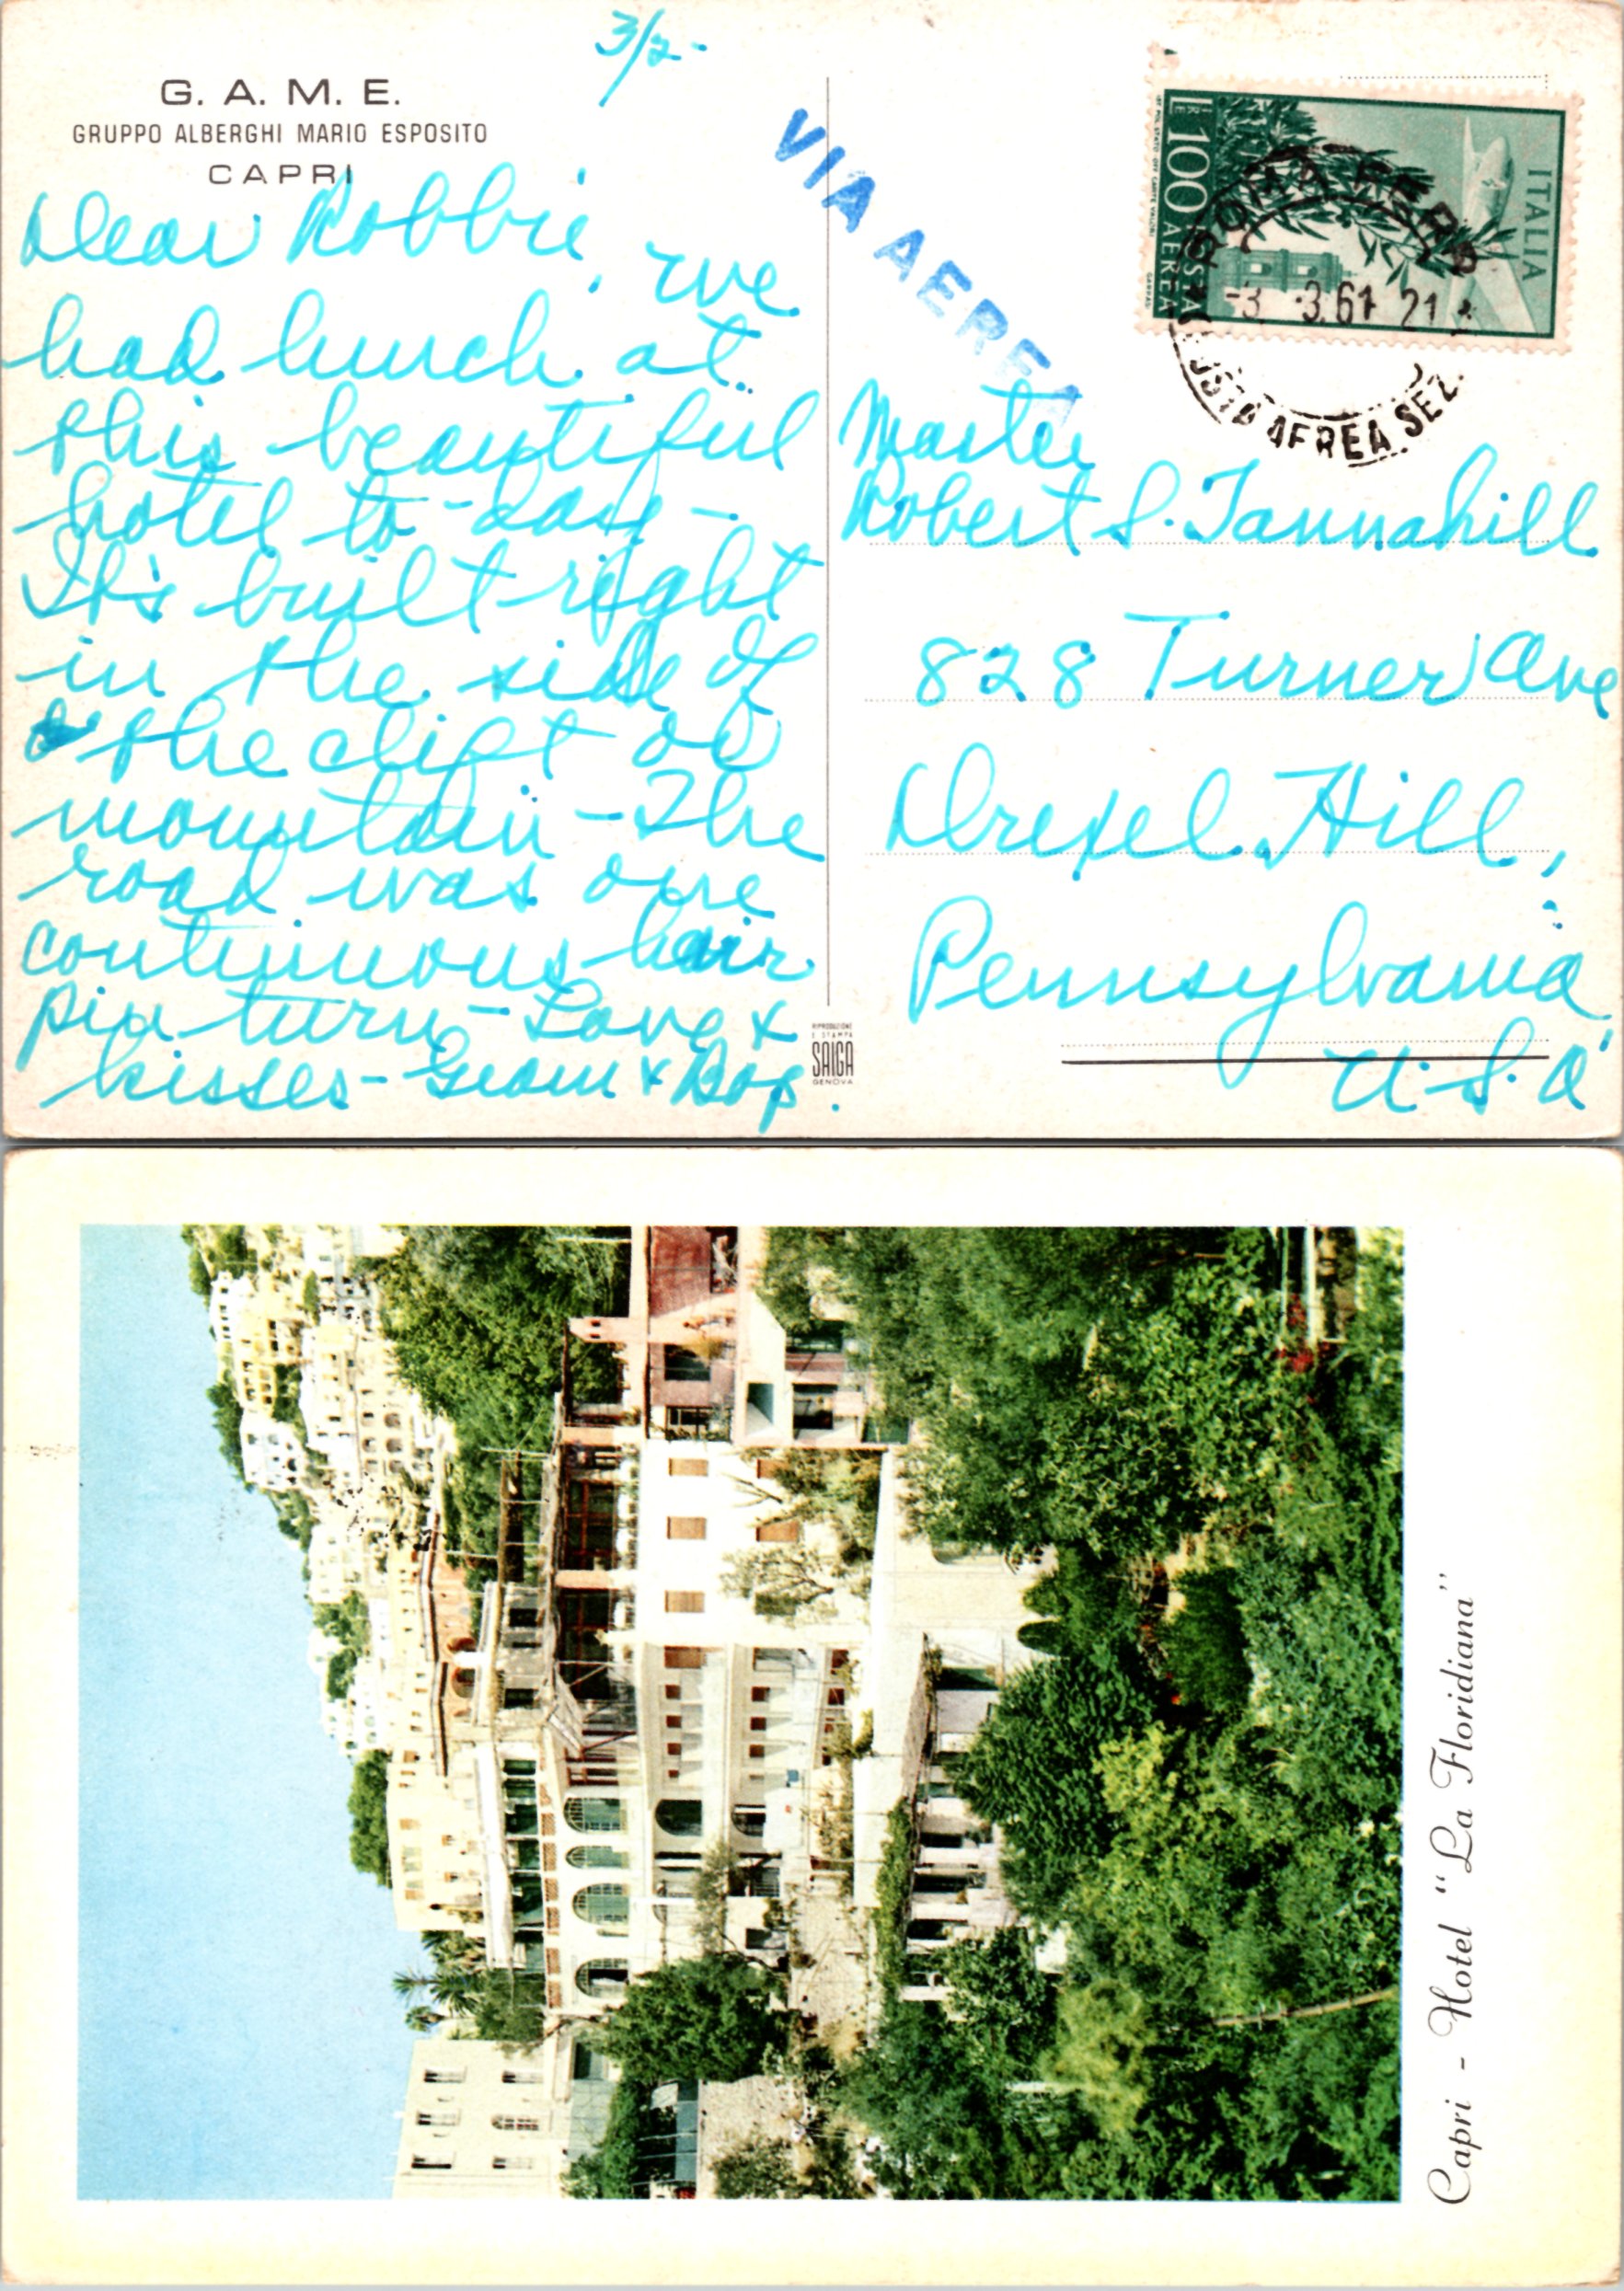 3/2-
G. A. M. E.
GRUPPO ALBERGHI MARIO ESPOSITO
CAPRI
Dear Robbie, we
had lunch at
this beautiful
hotel to-day-
It's built right
in the side of
the clift of
mountain - The
road was one
continuous hair
pin turn - Love &
kisses - Geam & Bop.
VIA AEREA
ITALIA
LIRE 100
POSTA AEREA
ROMA FERR
-3. -3.61 21
POSTA AEREA SEZ.
Master
Robert S. Tannahill
828 Turner Ave
Drexel Hill,
Pennsylvania
U.S.A
RIPRODUZIONE
E STAMPA
SAIGA
GENOVA
Capri - Hotel "La Floridiana"